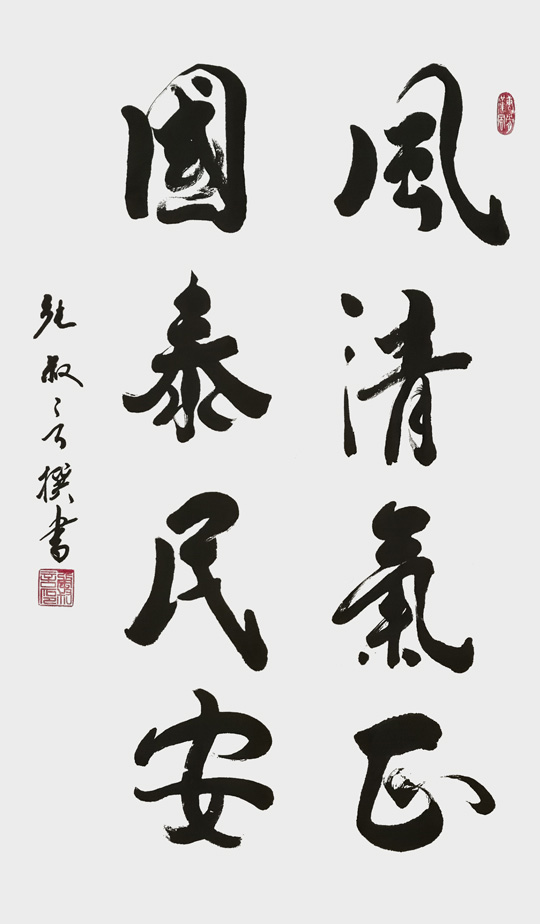 風清氣正
國泰民安
撰書